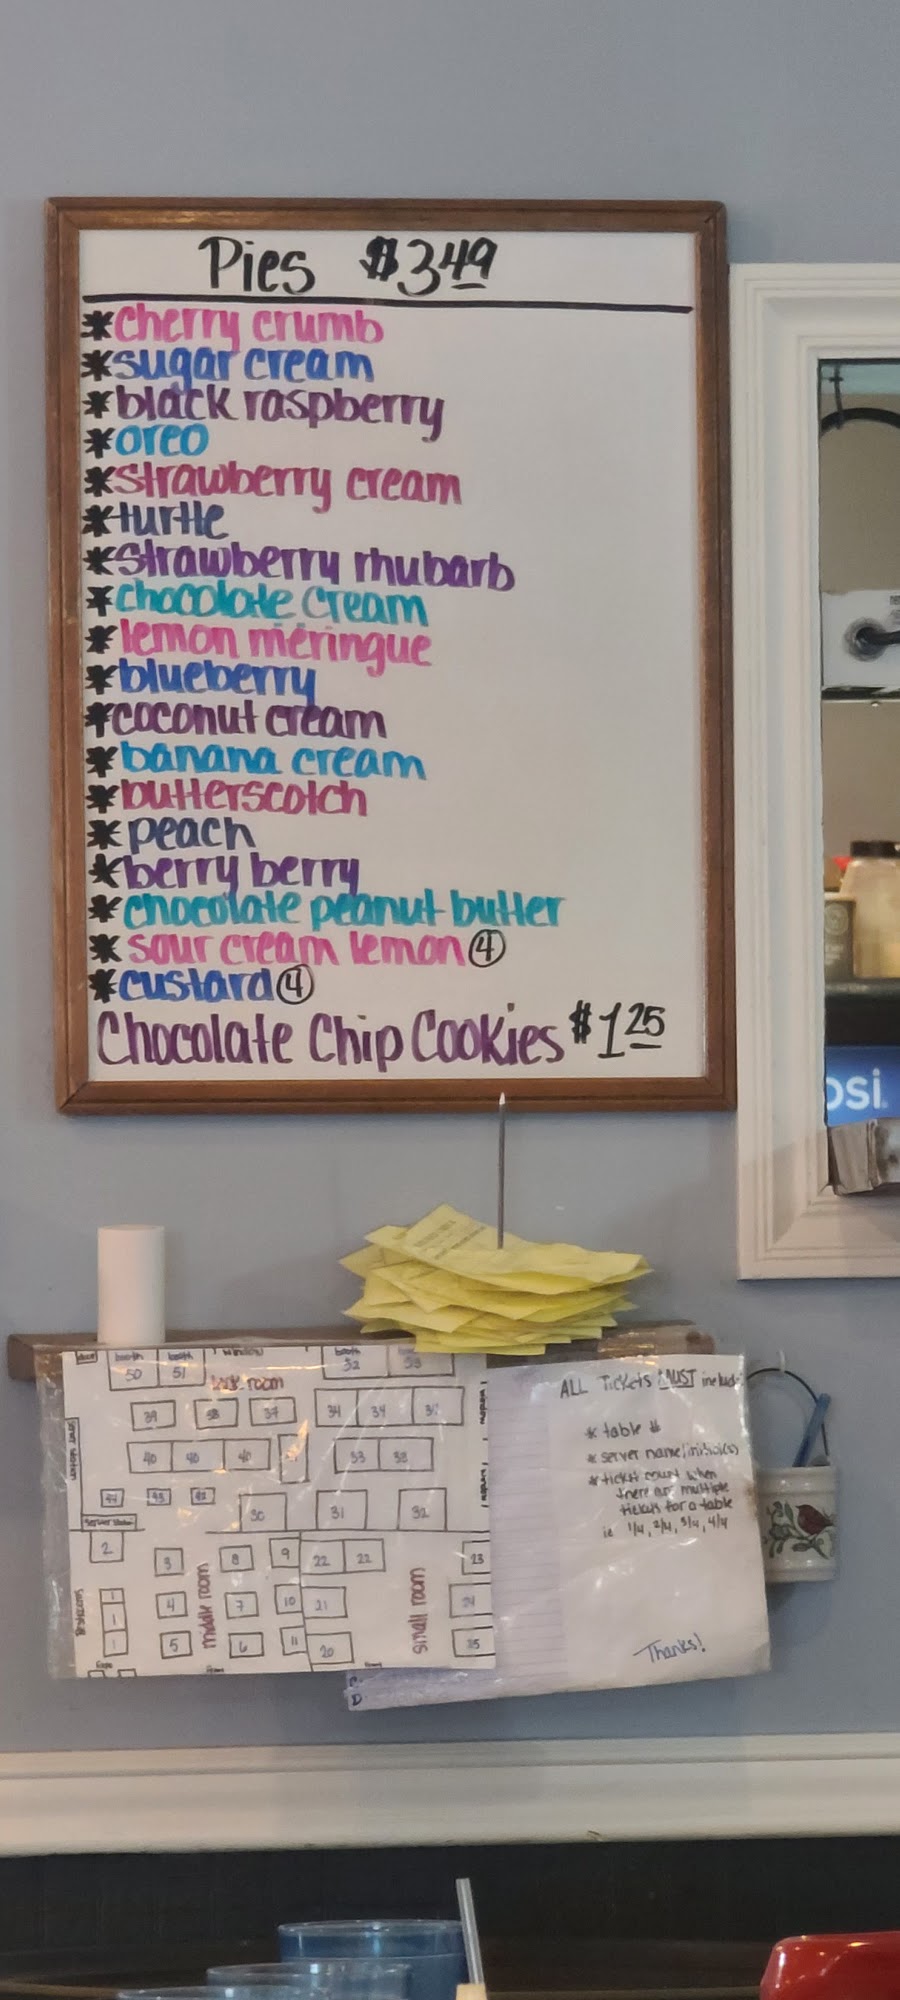 Pies $3.49
*cherry crumb
*sugar cream
*black raspberry
*oreo
*strawberry cream
*turtle
*strawberry rhubarb
*chocolate cream
*lemon meringue
*blueberry
*coconut cream
*banana cream
*butterscotch
*peach
*berry berry
*chocolate peanut butter
*sour cream lemon 4
*custard 4
Chocolate Chip Cookies $1.25
osi.
booth booth window
50 51 52 53
room
39 38 37 34 34
40 40 40 33 33
42
30 31 32
2 3 8 9 22 22 23
1 4 7 10 21 24
1 5 6 11 20 25
1
middle room
small room
ALL Tickets MUST
* table #
* server name/initial(s)
* ticket count when
there are multiple
tickets for a table
ie 1/4, 2/4, 3/4, 4/4
Thanks!
D